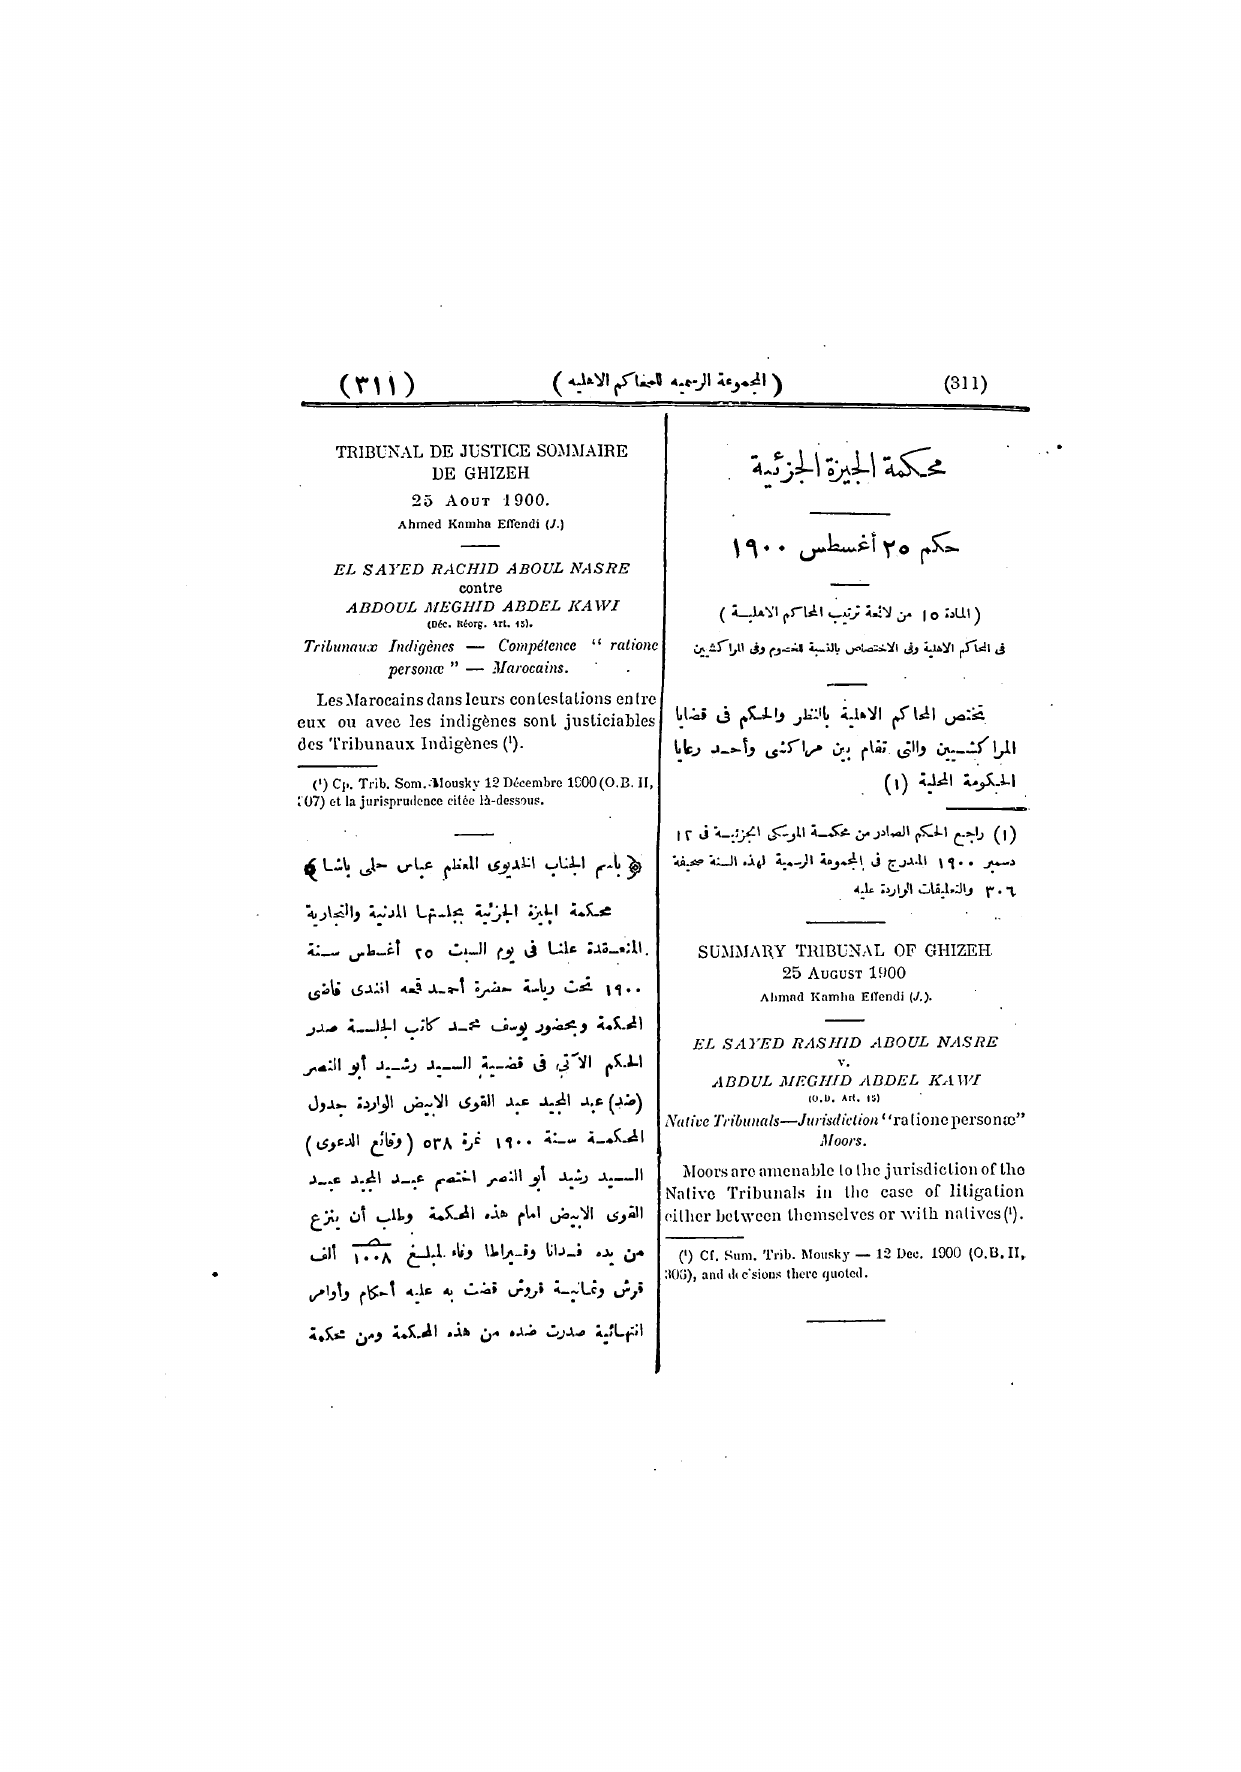 (٣١١) (المجموعة الرسميه للمحاكم الاهليه) (311)
محكمة الجيزة الجزئية
حكم ٢٥ أغسطس ١٩٠٠
(المادة ١٥ من لائحة ترتيب المحاكم الاهليـة)
فى المحاكم الاهلية وفى الاختصاص بالنسبة للخصوم وفى المراكشيين
تختص المحاكم الاهلية بالنظر والحكم فى قضايا
المراكشـيين والتى تقام بين مراكشى وأحـد رعايا
الحكومة المحلية (١)
(١) راجع الحكم الصادر من محكمـة الموسكى الجزئيـة فى ١٢
دسمبر ١٩٠٠ المدرج فى المجموعة الرسمية لهذه السنة صحيفة
٣٠٦ والتعليقات الواردة عليه
SUMMARY TRIBUNAL OF GHIZEH.
25 AUGUST 1900
Ahmad Kamha Effendi (J.).
EL SAYED RASHID ABOUL NASRE
v.
ABDUL MEGHID ABDEL KAWI
(O.D. Art. 15)
Native Tribunals—Jurisdiction "ratione personæ"
Moors.
Moors are amenable to the jurisdiction of the
Native Tribunals in the case of litigation
either between themselves or with natives (¹).
(¹) Cf. Sum. Trib. Mousky — 12 Dec. 1900 (O.B. II,
306), and decisions there quoted.
TRIBUNAL DE JUSTICE SOMMAIRE
DE GHIZEH
25 AOUT 1900.
Ahmed Kamha Effendi (J.)
EL SAYED RACHID ABOUL NASRE
contre
ABDOUL MEGHID ABDEL KAWI
(Déc. Réorg. Art. 15).
Tribunaux Indigènes — Compétence " ratione
personæ " — Marocains.
Les Marocains dans leurs contestations entre
eux ou avec les indigènes sont justiciables
des Tribunaux Indigènes (¹).
(¹) Cp. Trib. Som. Mousky 12 Décembre 1900 (O.B. II,
307) et la jurisprudence citée là-dessous.
﴿ باسم الجناب الخديوى المعظم عباس حلمى باشا ﴾
محكمة الجيزة الجزئية بجلستها المدنية والتجارية
المنعـقدة علنا فى يوم السبت ٢٥ أغسطس سـنة
١٩٠٠ تحت رياسة حضرة أحمـد قمحه افندى قاضى
المحكمة وبحضور يوسف محمـد كاتب الجلسـة صدر
الحكم الآتى فى قضـية السـيد رشـيد أبو النصر
(ضد) عبد المجيد عبد القوى الابيض الواردة جدول
المحكمـة سـنة ١٩٠٠ نمرة ٥٣٨ (وقائع الدعوى)
السـيد رشيد أبو النصر اختصم عبـد المجيد عبـد
القوى الابيض امام هذه المحكمة وطلب أن ينزع
من يده فـدانا وقـيراطا وفاء لمبلـغ ١٠٠٨ ألف
قرش وثمانيـة قروش قضت به عليه أحكام وأوامر
انتهـائية صدرت ضده من هذه المحكمة ومن محكمة